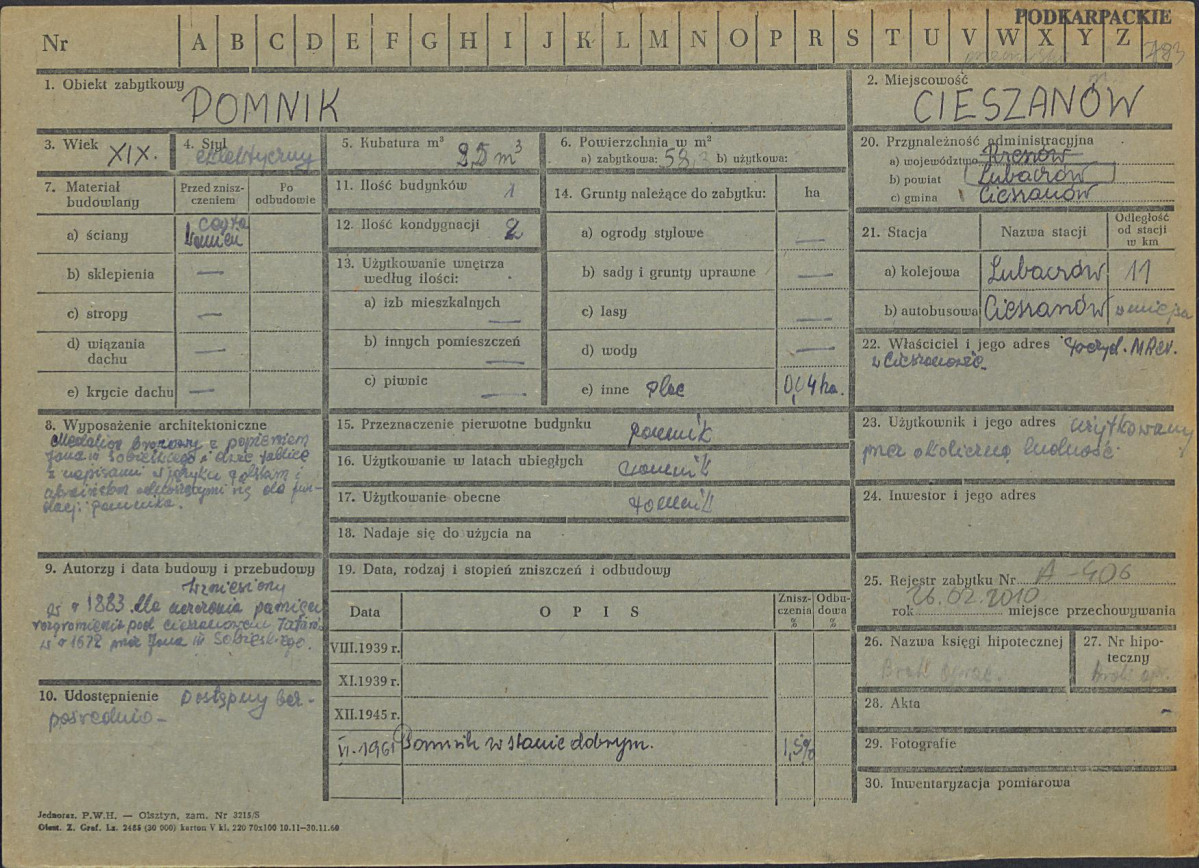 PODKARPACKIE
Nr A B C D E F G H I J K L M N O P R S T U V W X Y Z
783
1. Obiekt zabytkowy
POMNIK
2. Miejscowość
CIESZANÓW
3. Wiek XIX.
4. Styl
eklektyczny
5. Kubatura m³
9,5 m³
6. Powierzchnia w m²
a) zabytkowa: 58, b) użytkowa:
7. Materiał budowlany
Przed zniszczeniem
Po odbudowie
a) ściany
cegła
kamień
b) sklepienia —
c) stropy —
d) wiązania dachu —
e) krycie dachu —
11. Ilość budynków 1
12. Ilość kondygnacji 2
13. Użytkowanie wnętrza
według ilości:
a) izb mieszkalnych —
b) innych pomieszczeń —
c) piwnic —
14. Grunty należące do zabytku: ha
a) ogrody stylowe —
b) sady i grunty uprawne —
c) lasy —
d) wody —
e) inne plac 0,04 ha.
20. Przynależność administracyjna
a) województwo Rzeszów
b) powiat Lubaczów
c) gmina Cieszanów
21. Stacja
Nazwa stacji
Odległość
od stacji
w km
a) kolejowa Lubaczów 11
b) autobusowa Cieszanów w miejscu
22. Właściciel i jego adres Prezyd. MRN.
w Cieszanowie.
8. Wyposażenie architektoniczne
Medalion brązowy z popiersiem
Jana III Sobieskiego i dwie tablice
z napisami w języku polskim i
ukraińskim odnoszącymi się do fun-
dacji pomnika.
15. Przeznaczenie pierwotne budynku pomnik
16. Użytkowanie w latach ubiegłych pomnik
17. Użytkowanie obecne pomnik
18. Nadaje się do użycia na
23. Użytkownik i jego adres użytkowany
przez okoliczną ludność.
24. Inwestor i jego adres
9. Autorzy i data budowy i przebudowy
Wzniesiony
w r 1883 dla uczczenia pamięci
rozgromienia pod Cieszanowem Tatarów
w r 1672 przez Jana III Sobieskiego.
10. Udostępnienie Dostępny bez-
pośrednio -
19. Data, rodzaj i stopień zniszczeń i odbudowy
Data
OPIS
Zniszczenia
%
Odbudowa
%
VIII.1939 r.
XI.1939 r.
XII.1945 r.
VI. 1961 Pomnik w stanie dobrym. 1,5%
25. Rejestr zabytku Nr A-406
26.02.2010
rok miejsce przechowywania
26. Nazwa księgi hipotecznej
Brak oprac.
27. Nr hipoteczny
Brak opr.
28. Akta -
29. Fotografie
30. Inwentaryzacja pomiarowa
Jednoraz. P.W.H. — Olsztyn, zam. Nr 3215/S
Olszt. Z. Graf. Lz. 2485 (30 000) karton V kl. 220 70x100 10.11—30.11.60